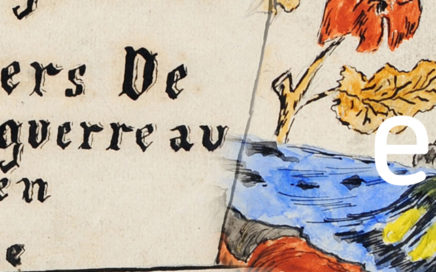 ers De
guerre au
en
e
e